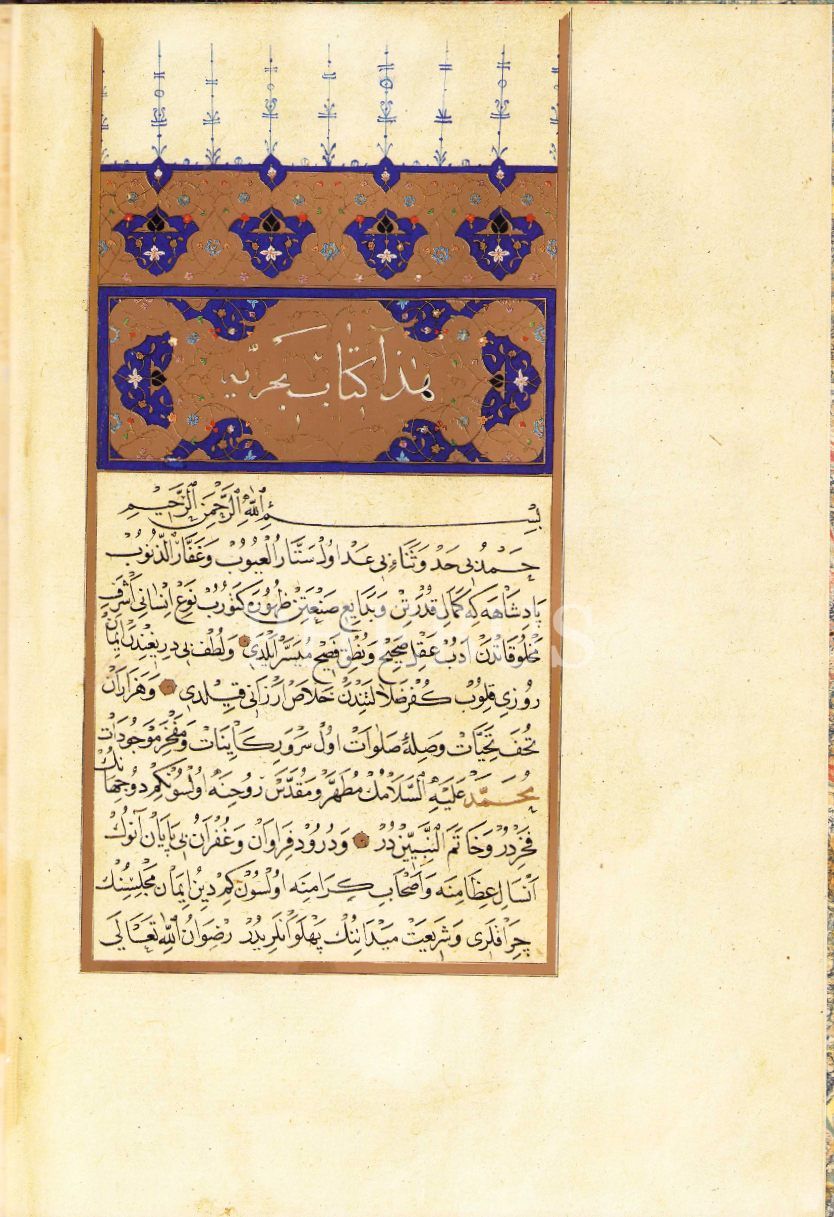 هذا كتاب بحريه
بِسْمِ اللّٰهِ الرَّحْمٰنِ الرَّحِيمِ
حَمْدُ بِی حَدْ وَثَنَاءِ بِی عَدْ اولْ سَتَّارُ الْعُيُوبْ وَغَفَّارُ الذُّنُوبْ
پادشاهَه كه كَمَالِ قُدْرَتِنْ وَبَدَايِعِ صَنْعَتِنْ ظُهُورَه كَتُورُبْ نَوْعِ اِنْسَانِی اَشْرَفِ
مَخْلُوقَاتْدَنْ اَدُبْ عَقْلِ صَحِيحْ وَنُطْقِ فَصِيحْ مُيَسَّرْ اَيْلَدِی وَلُطْفِ بِی دِرِيغِنْدَنْ اِيمَانْ
رُوزِی قِلُوبْ كُفْرِ ضَلَالَتِنْدَنْ خَلَاصْ اَرْزَانِی قِيلْدِی وَهَزَارَانْ
تُحَفِ تَحِيَّاتْ وَصِلَهٔ صَلَوَاتْ اولْ سَرْوَرِ كَاينَاتْ وَمَفْخَرِ مَوْجُودَاتْ
مُحَمَّدْ عَلَيْهِ السَّلَامُكْ مُطَهَّرْ وَمُقَدَّسْ رُوحِنَه اولْسُونْكِمْ دُوجِهَانُكْ
فَخْرِدُرْ وَخَاتَمُ النَّبِيِّينْ دُرْ وَدُرُودِ فِرَاوَانْ وَغُفْرَانِ بِی پَايَانْ آنُوكْ
اَنْسَالِ عِظَامِنَه وَاَصْحَابِ كِرَامِنَه اولْسُونْ كِمْ دِينُ اِيمَانْ مَجْلِسِنُكْ
چِرَاغْلَرِی وَشَرِيعَتْ مَيْدَانِنُكْ پَهْلَوَانْلَرِيدُرْ رِضْوَانُ اللّٰهِ تَعَالَی